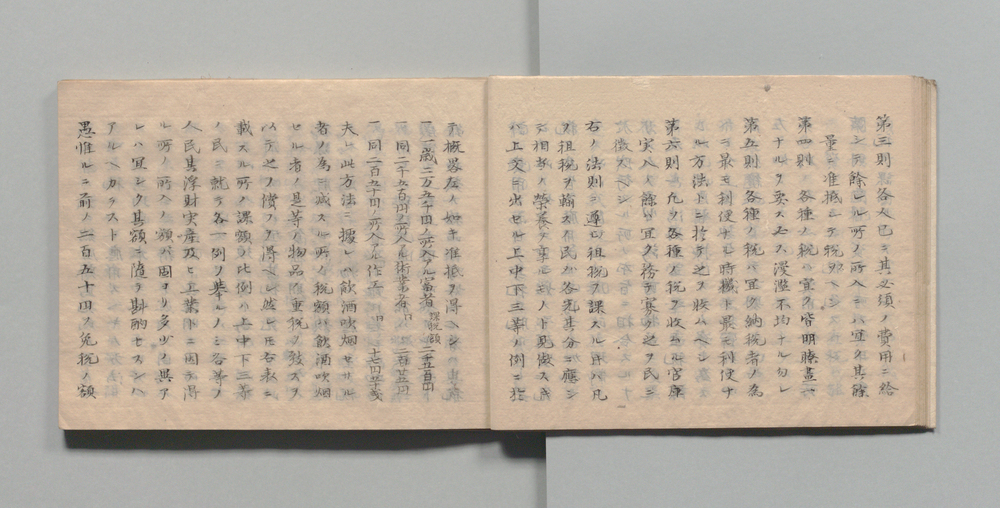 第三則 各人已ニ其必須ノ費用ニ給
シテ餘レル所ノ所入ニハ宜ク其餘
量ニ准抵シテ税ヲ
第四則 各種ノ税ハ宜ク皆明瞭畫一
ナルヲ要ス乏ス漫濫不均ナル勿レ
第五則 各種ノ税ハ宜ク納税者ノ為
ニ最モ利便ナル時機ト最モ利便ナ
ル方法トニ於テ之ヲ收ムヘシ
第六則 凡ソ各種ノ税ヲ收ムル官庫
実入ノ餘ハ宜ク務テ寡ク之ヲ民ニ
徴スヘシ
右ノ法則ニ遵ヒ租税ヲ課スル時ハ凡
ソ租税ヲ輸スル民ハ各其分ニ應シ
テ相当ノ榮養ヲ享ルモノト見做スヘキ
ハ上文ニ出セル上中下三等ノ例ニ於
テ概畧左ノ如キ准抵ヲ得ヘシ
一 歳二万五千円ノ所入アル富者 課税額 二千五百円
一 同二千五百円ノ所入アル術業ノ者 同 二百廿五円
一 同二百五十円ノ所入アル作工 同
夫レ此方法ニ據レハ飲酒吹烟セサル
者ノ為ニ減スル所ノ税額ハ飲酒吹烟
セル者ノ是等ノ物品ニ重税ヲ發スヲ
以テ之ヲ償フヲ得ヘシ然レモ右表ニ
載スル所ノ課額ノ比例ハ上中下三等
ノ民ニ就テ各一例ヲ挙ルノミ各等ノ
人民其浮財実産及ヒ工業ニ因テ得
ル所ノ所入ノ額ハ固ヨリ多少ノ異ア
レハ宜シク其額ニ随テ斟酌セスンハ
アルヘカラスト
愚惟ルニ前ノ二百五十円ハ免税ノ額